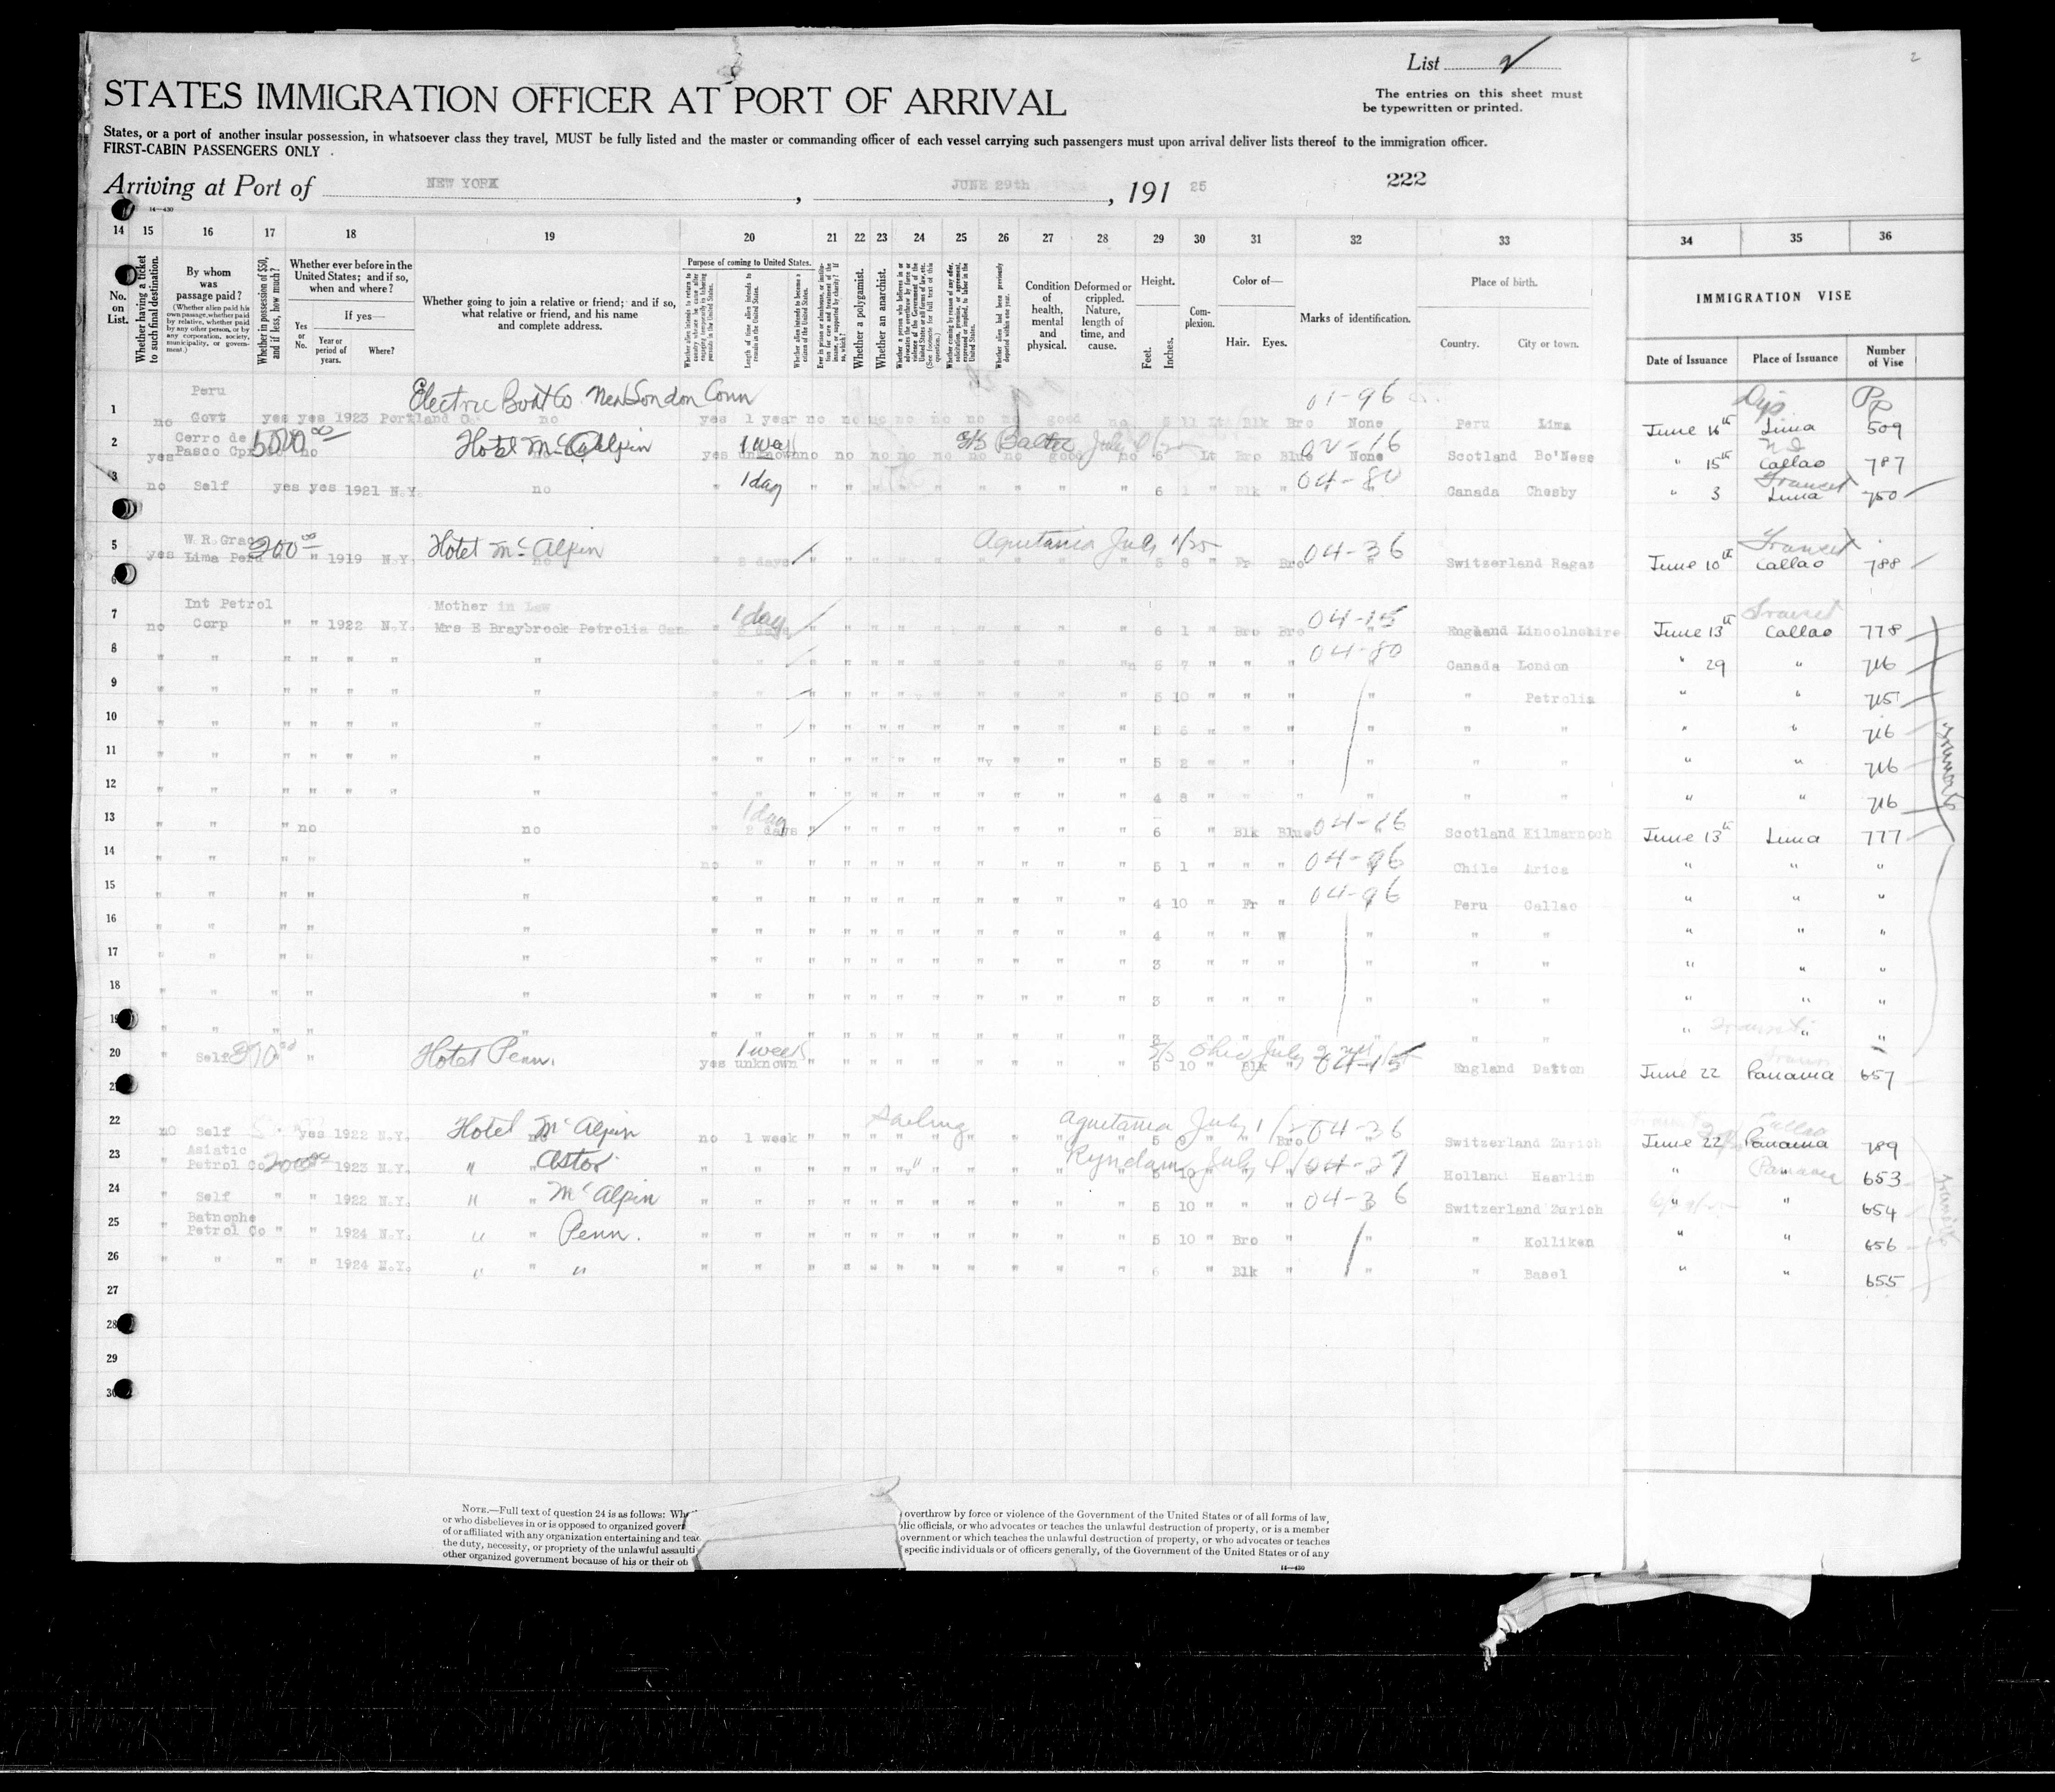 List 2
2
STATES IMMIGRATION OFFICER AT PORT OF ARRIVAL
The entries on this sheet must
be typewritten or printed.
States, or a port of another insular possession, in whatsoever class they travel, MUST be fully listed and the master or commanding officer of each vessel carrying such passengers must upon arrival deliver lists thereof to the immigration officer.
FIRST-CABIN PASSENGERS ONLY
Arriving at Port of NEW YORK, JUNE 29th, 191 25 222
14—430
14 15 16 17 18 19 20 21 22 23 24 25 26 27 28 29 30 31 32 33 34 35 36
No. on List.
Whether having a ticket to such final destination.
By whom was passage paid?
(Whether alien paid his own passage, whether paid by relative, whether paid by any other person, or by any corporation, society, municipality, or government.)
Whether in possession of $50, and if less, how much?
Whether ever before in the United States; and if so, when and where?
Yes or No.
If yes—
Year or period of years.
Where?
Whether going to join a relative or friend; and if so, what relative or friend, and his name and complete address.
Purpose of coming to United States.
Length of time alien intends to remain in the United States.
Whether a polygamist.
Whether an anarchist.
Condition of health, mental and physical.
Deformed or crippled. Nature, length of time, and cause.
Height.
Feet. Inches.
Complexion.
Color of—
Hair. Eyes.
Marks of identification.
Place of birth.
Country. City or town.
IMMIGRATION VISE
Date of Issuance Place of Issuance Number of Vise
Peru Electric Boat Co New London Conn 01-96 Dip. PP
1 no Govt yes yes 1923 Portland O. no yes 1 year no no no no no no no good no 5 11 Lt Blk Bro None Peru Lima June 16th Lima 509
2 Cerro de 5000 00 Hotel McAlpin 1 week S/S Baltic July 02-16
yes Pasco Cpr no yes unknown no no no no no no no good no 6 Lt Bro Blue None Scotland Bo'Ness " 15th Callao 787
3 no Self yes yes 1921 N.Y. no " 1 day " " " " " " " 6 1 " Blk " 04-80 Canada Chesby " 3 Transit Lima 750
5 W R Grace 200 00 Hotel McAlpin Aquitania July 1/25 04-36 Transit
yes Lima Peru " 1919 N.Y. no " 2 days " " " " " 5 8 " Fr Bro " Switzerland Ragaz June 10th Callao 788
6
7 Int Petrol Mother in Law 1 day 04-15 Transit
no Corp " " 1922 N.Y. Mrs E Braybrook Petrolia Can " 2 days " " " " " 6 1 " Bro Bro " England Lincolnshire June 13th Callao 778
8 " " " " " " " " " " 5 7 " " " 04-80 Canada London " 29 " 716
9 " " " " " " " " " " 5 10 " " " " " Petrolia " " 715
10 " " " " " " " " " " 5 6 " " " " " " " " 716
11 " " " " " " " " " " 5 2 " " " " " " " " 716
12 " " " " " " " " " " 4 8 " " " " " " " " 716
13 " " " no no " 1 day 2 days " " " " 6 " Blk Blue 04-16 Scotland Kilmarnoch June 13th Lima 777
14 " " " " " no " " " " " 5 1 " " " 04-96 Chile Arica " " "
15 " " " " " " " " " " 4 10 " Fr " 04-96 Peru Callao " " "
16 " " " " " " " " " " 4 " " " " " " " " "
17 " " " " " " " " " " 3 " " " " " " " " "
18 " " " " " " " " " " 3 " " " " " " " " "
19 " " " " " " " " " " " " " " " " " " Transit " "
20 " Self " Hotel Penn. 1 week S/S Ohio July 2nd 04-15
yes unknown " " " " " 5 10 " Blk " England Datton June 22 Panama 657
21
22 no Self yes 1922 N.Y. Hotel McAlpin no 1 week " Sailing Aquitania July 1 Bro 04-36 Switzerland Zurich June 22 Panama 789
23 Asiatic Petrol Co 200 00 " 1923 N.Y. " " Astor " " " Ryndam July 5 10 " 04-27 Holland Haarlim " Panama 653
24 " Self " " 1922 N.Y. " " McAlpin " " " " 5 10 " " " 04-36 Switzerland Zurich " " 654
25 " Batnophe Petrol Co " " 1924 N.Y. " " Penn. " " " " 5 10 " Bro " " " Kolliken " " 656
26 " " " " 1924 N.Y. " " " " " " " 6 " Blk " " " Basel " " 655
27
28
29
30
Transit
Transit
NOTE.—Full text of question 24 is as follows: Whe overthrow by force or violence of the Government of the United States or of all forms of law,
or who disbelieves in or is opposed to organized govern lic officials, or who advocates or teaches the unlawful destruction of property, or is a member
of or affiliated with any organization entertaining and teac overnment or which teaches the unlawful destruction of property, or who advocates or teaches
the duty, necessity, or propriety of the unlawful assaulti specific individuals or of officers generally, of the Government of the United States or of any
other organized government because of his or their off
14—430